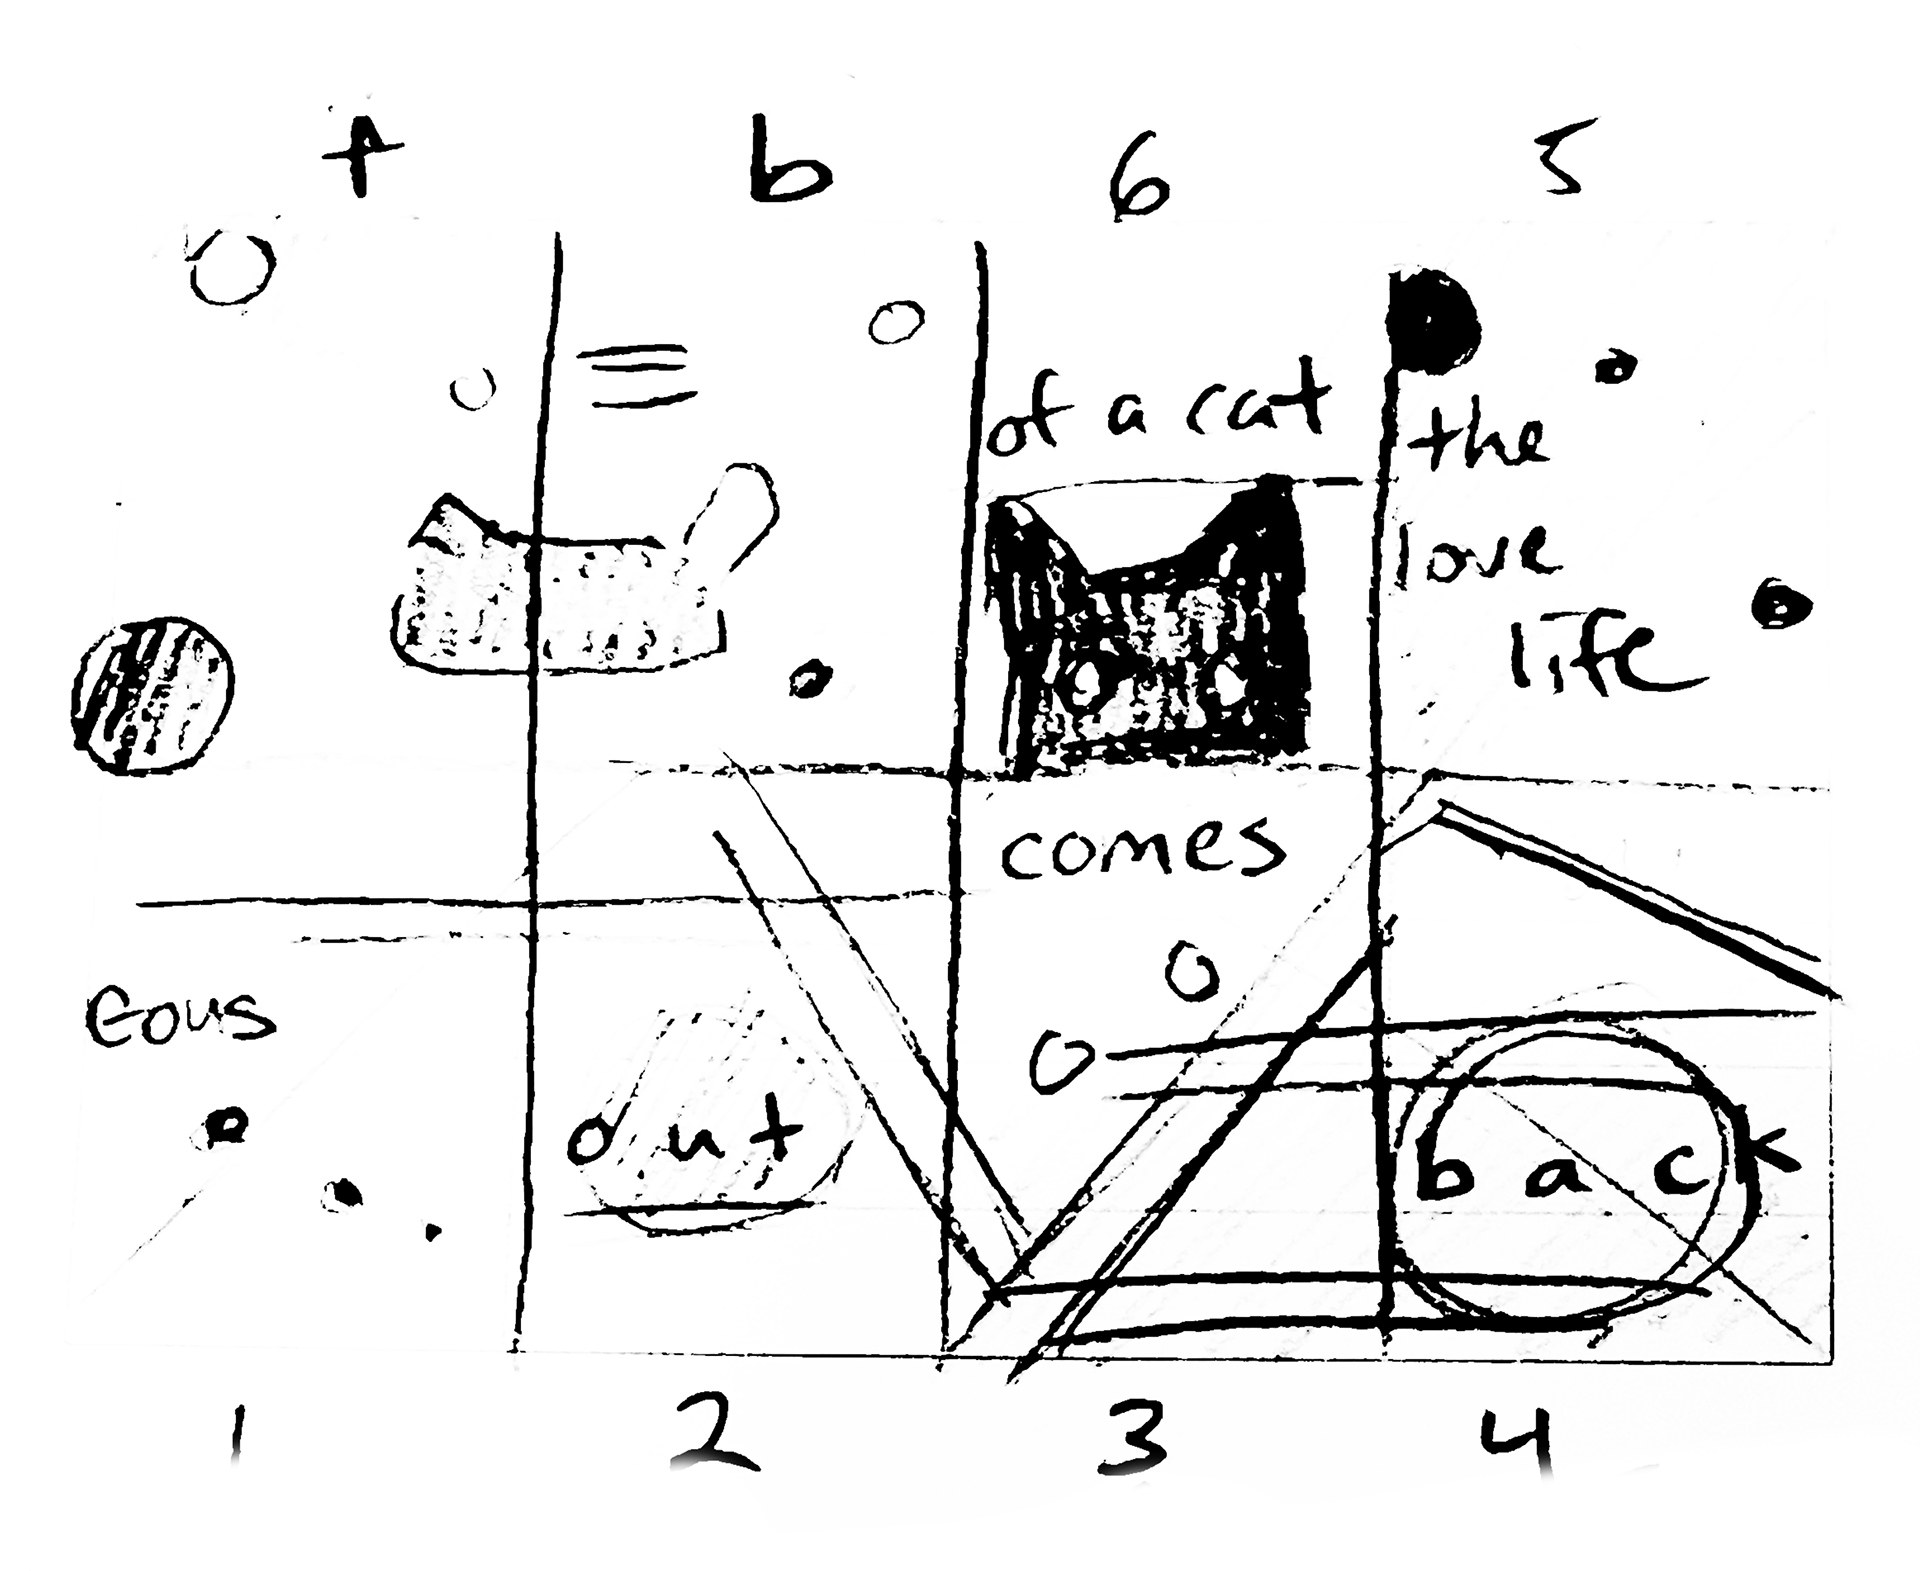 f b 6 5
of a cat
the
love
life
comes
Goes
out
back
1 2 3 4